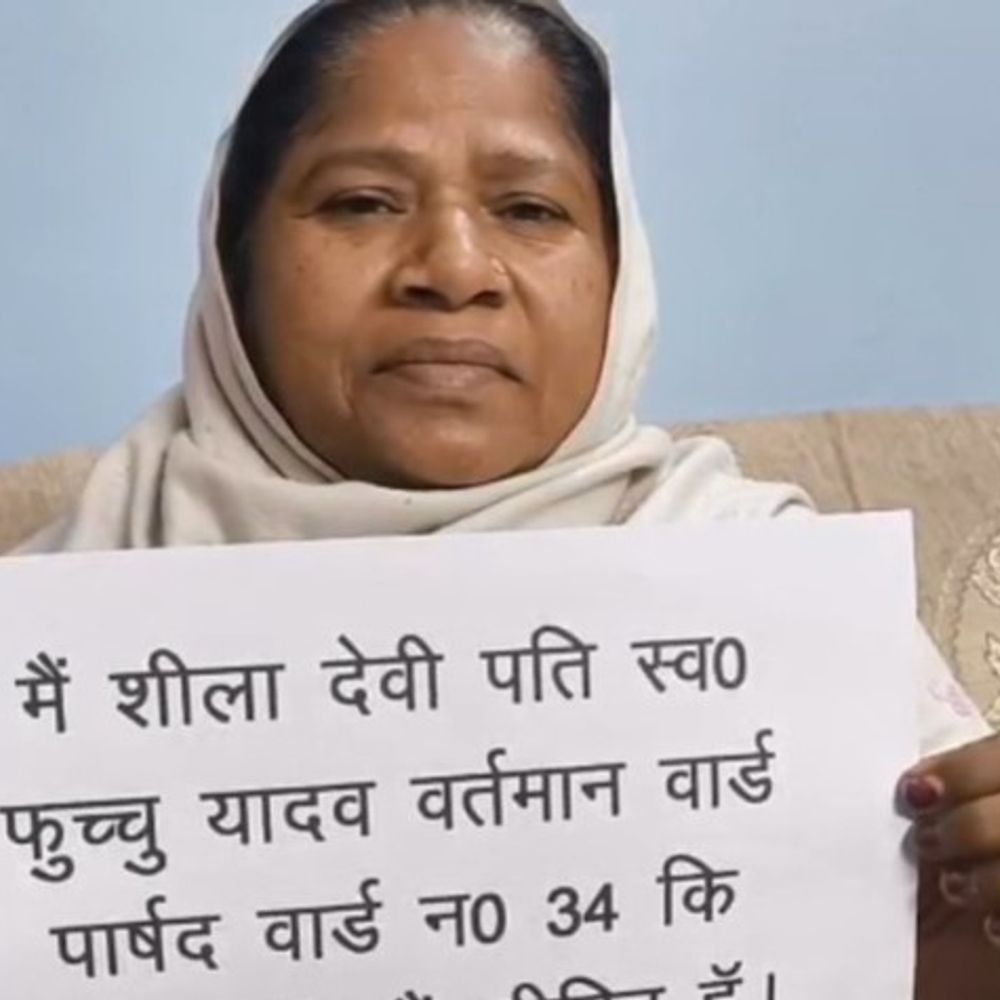 मैं शीला देवी पति स्व0
फुच्चु यादव वर्तमान वार्ड
पार्षद वार्ड न0 34 कि
हूँ।